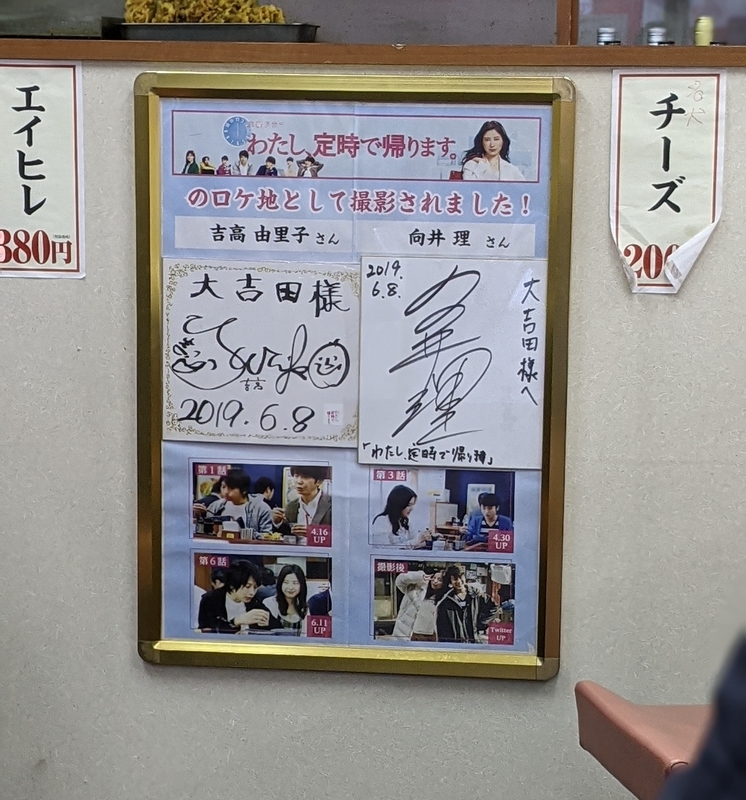 エイヒレ
380円
わたし、定時で帰ります。
のロケ地として撮影されました!
吉高 由里子 さん
向井 理 さん
大吉田様
吉高
2019.6.8
2019.
6.8.
大吉田様へ
向井理
「わたし、定時で帰り〼」
第1話
4.16
UP
第3話
4.30
UP
第6話
6.11
UP
撮影後
Twitter
UP
チーズ